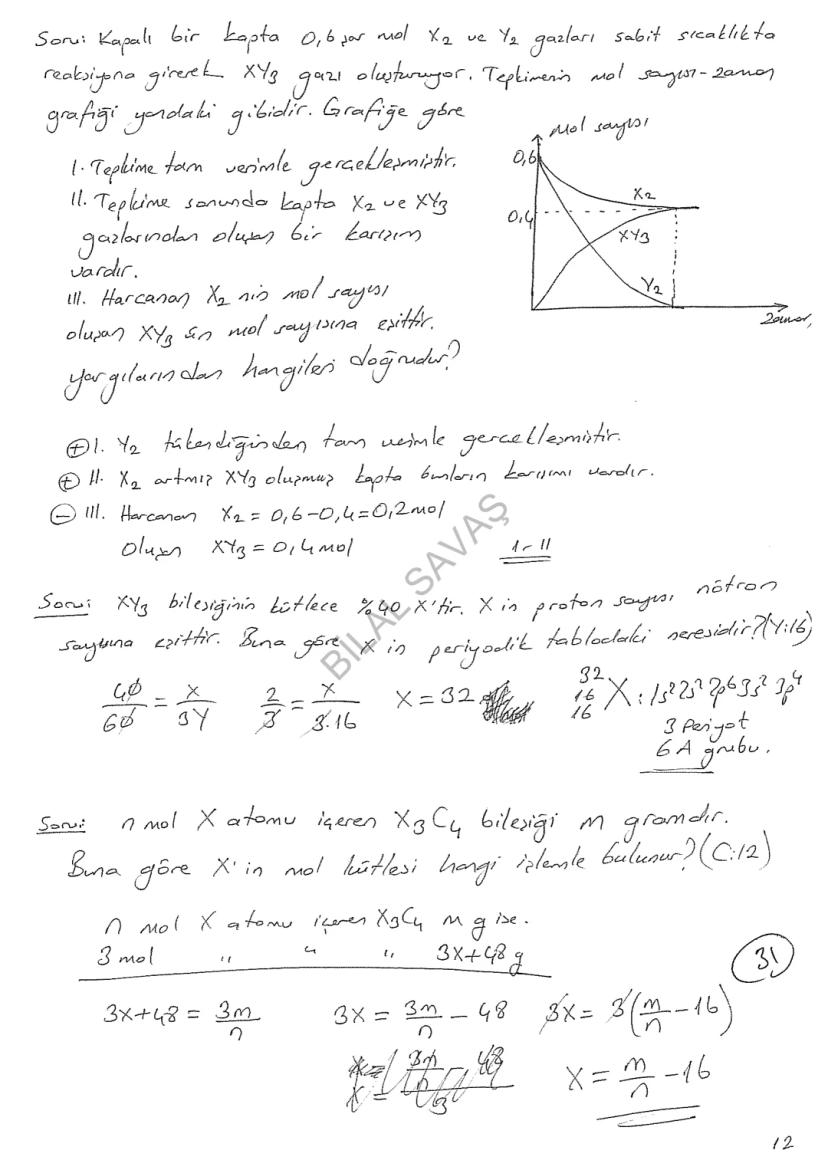 Soru: Kapalı bir kapta 0,6 şar mol X2 ve Y2 gazları sabit sıcaklıkta
reaksiyona girerek XY3 gazı oluşturuyor. Tepkimenin mol sayısı-zaman
grafiği yandaki gibidir. Grafiğe göre
I. Tepkime tam verimle gerçekleşmiştir.
II. Tepkime sonunda kapta X2 ve XY3
gazlarından oluşan bir karışım
vardır.
III. Harcanan X2 nin mol sayısı
oluşan XY3 ün mol sayısına eşittir.
yargılarından hangileri doğrudur?
mol sayısı
0,6
X2
0,4
XY3
Y2
Zaman
+ I. Y2 tükendiğinden tam verimle gerçekleşmiştir.
+ II. X2 artmış XY3 oluşmuş kapta bunların karışımı vardır.
- III. Harcanan X2 = 0,6-0,4=0,2mol
Oluşan XY3 = 0,4mol I-II
BİLAL SAVAŞ
Soru: XY3 bileşiğinin kütlece %40 X'tir. X in proton sayısı nötron
sayısına eşittir. Buna göre X in periyodik tablodaki neresidir?(Y:16)
40/60 = X/3Y 2/3 = X/3.16 X=32 32 16 16 X: 1s2 2s2 2p6 3s2 3p4
3 Periyot
6A grubu.
Soru: n mol X atomu içeren X3C4 bileşiği m gramdır.
Buna göre X'in mol kütlesi hangi işlemle bulunur?(C:12)
n mol X atomu içeren X3C4 m g ise.
3 mol " " " 3X+48 g
31
3X+48 = 3m/n 3X = 3m/n - 48 3X = 3(m/n - 16)
X = m/n - 16
12